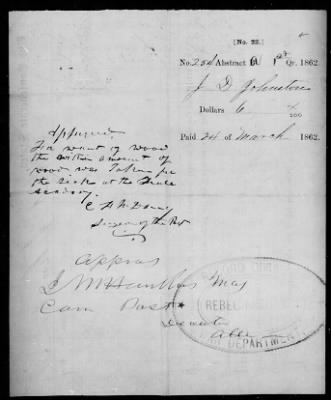 [No. 22.]
No. 254 Abstract B 1st Qr. 1862.
J D Johnston
Dollars 6 x/100
Paid 24 of March 1862.
Approved
For want of wood
the within amount of
wood was taken for
the sick at the
Surgeon of the Post
Approved
J M Maj
Com Post
Decatur
Ala
REBEL
WAR DEPARTMENT